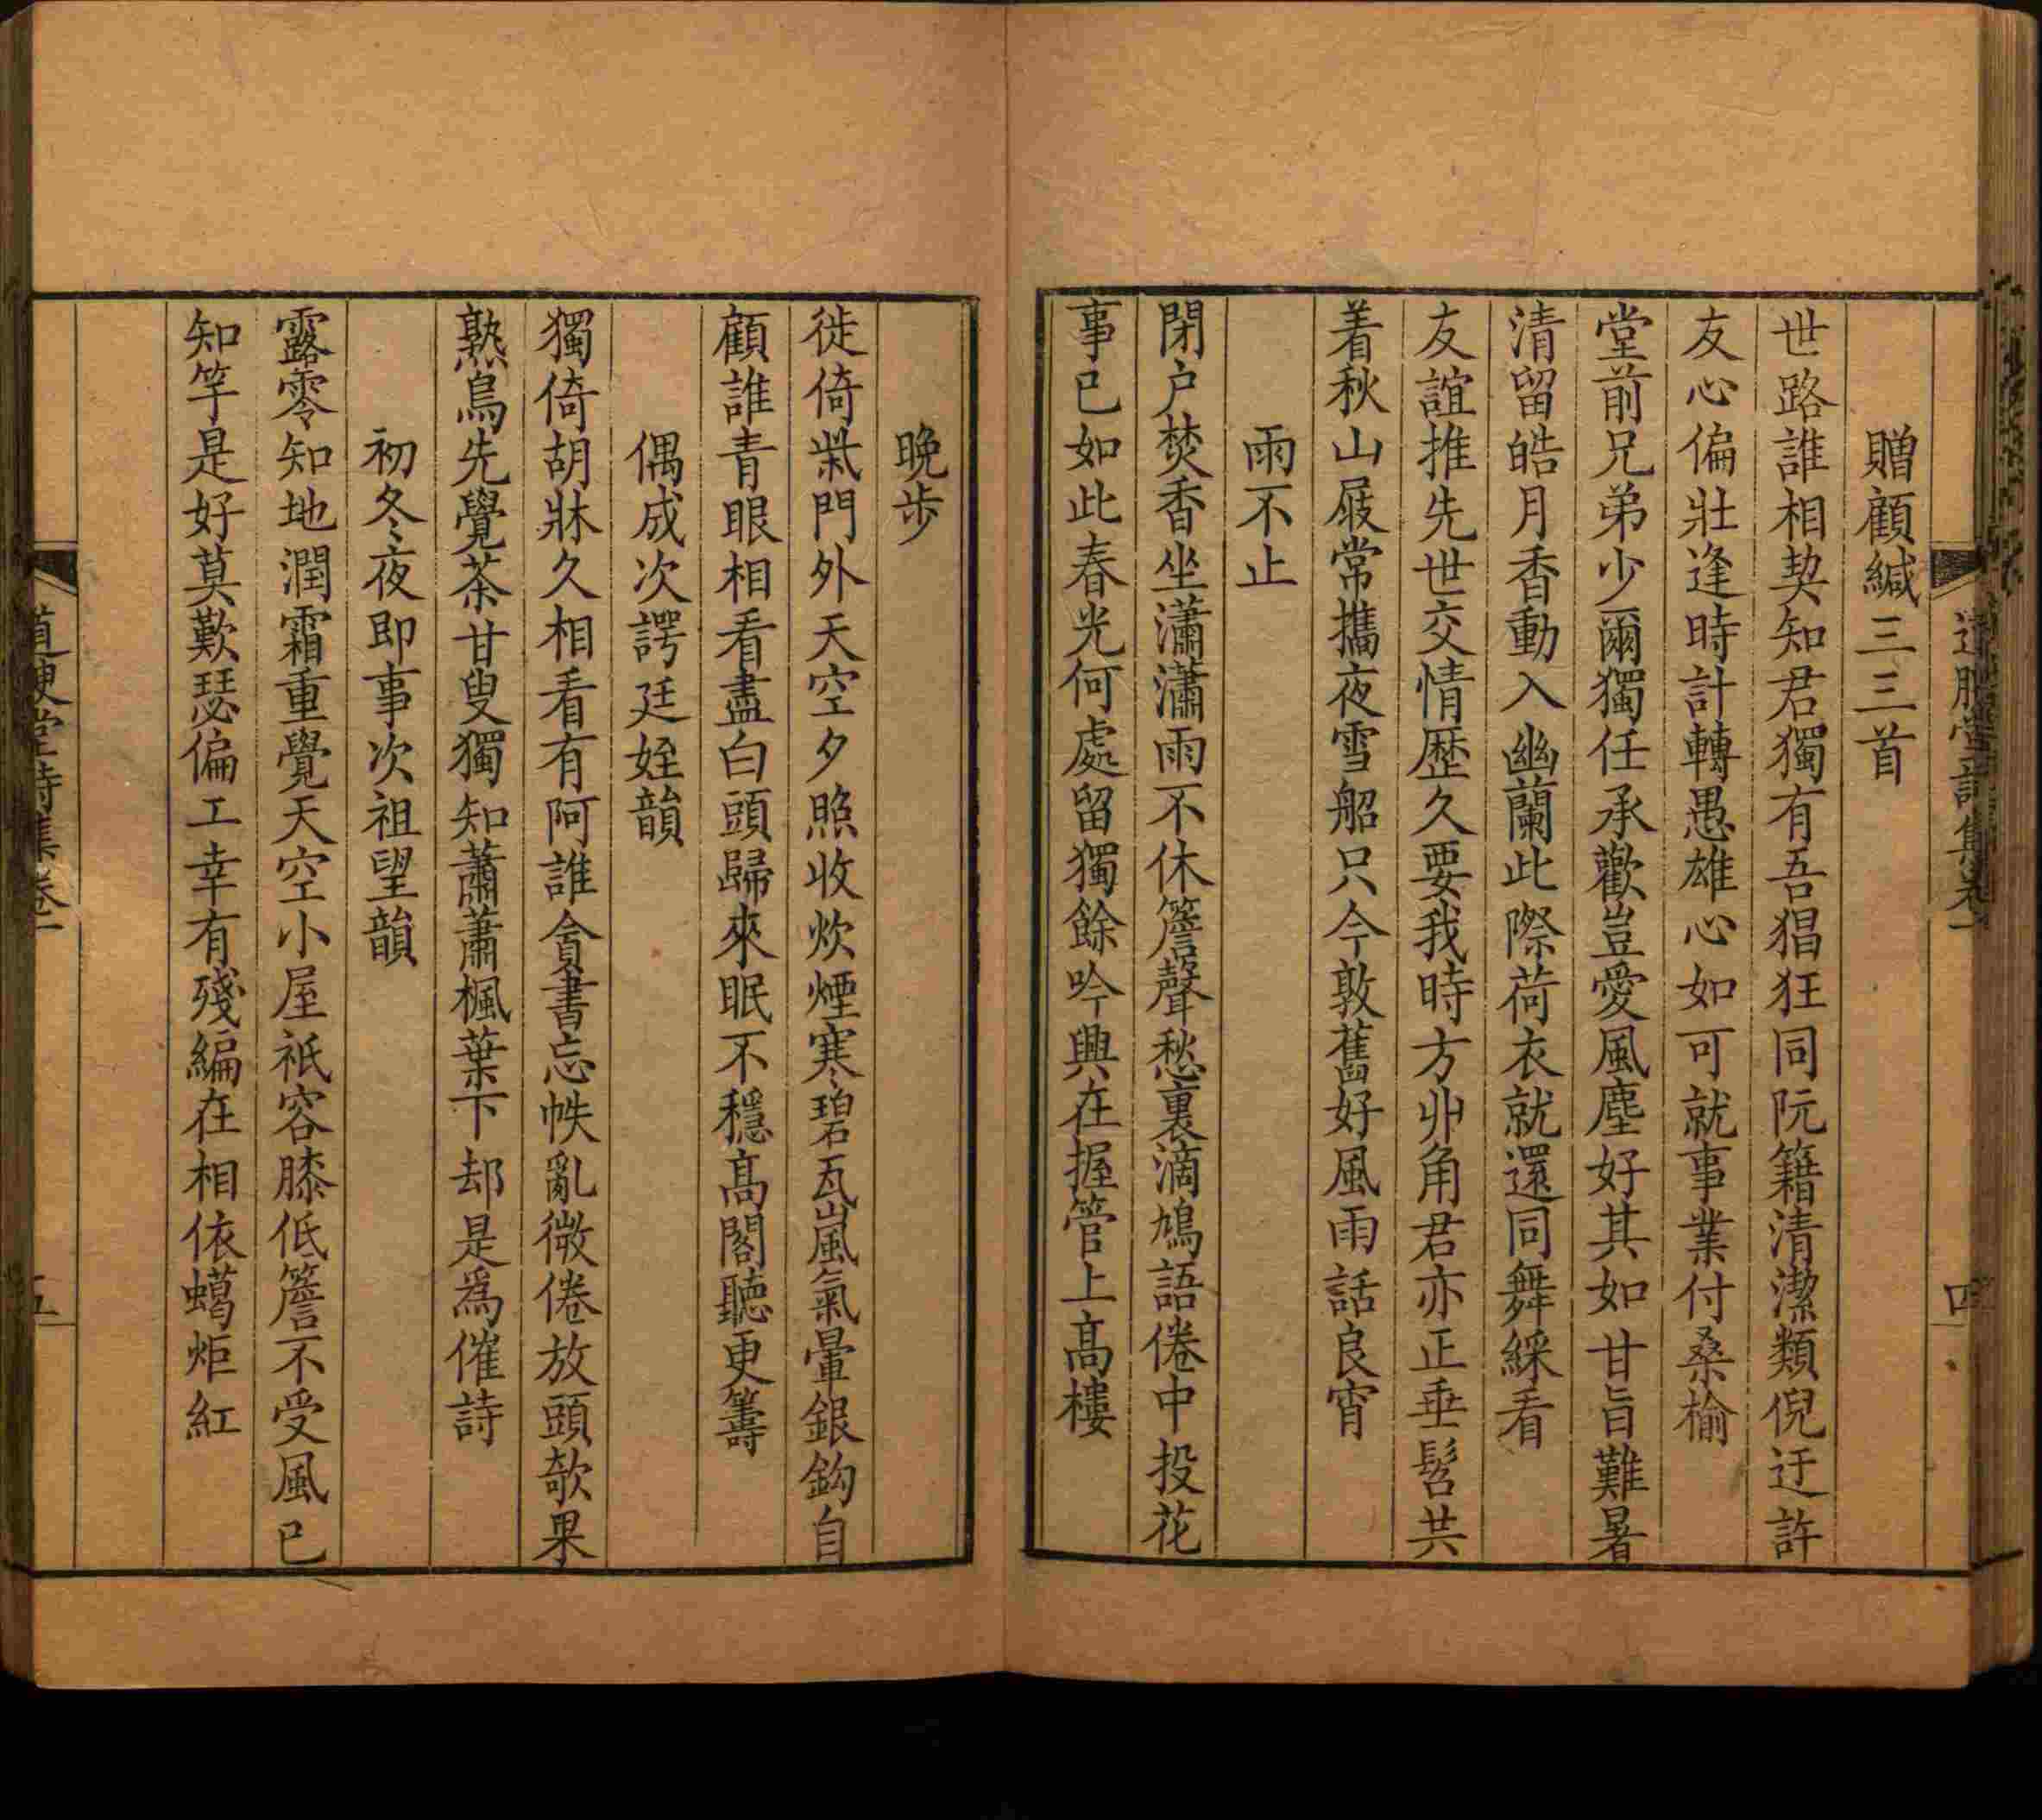 贈顧緘三三首
世路誰相契知君獨有吾猖狂同阮籍清潔類倪迂許
友心偏壯逢時計轉愚雄心如可就事業付桑榆
堂前兄弟少爾獨任承歡豈愛風塵好其如甘旨難暑
清留皓月香動入幽蘭此際荷衣就還同舞綵看
友誼推先世交情歷久要我時方丱角君亦正垂髫共
着秋山屐常攜夜雪船只今敦舊好風雨話良宵
雨不止
閉户焚香坐瀟瀟雨不休簷聲愁裏滴鳩語倦中投花
事已如此春光何處留獨餘吟興在握管上高樓
晚步
徙倚柴門外天空夕照收炊煙寒碧瓦嵐氣暈銀鈎自
顧誰青眼相看盡白頭歸來眠不穩高閣聽更籌
偶成次諤廷姪韻
獨倚胡牀久相看有阿誰貪書忘帙亂微倦放頭欹果
熟鳥先覺茶甘叟獨知蕭蕭楓葉下却是爲催詩
初冬夜即事次祖望韻
露零知地潤霜重覺天空小屋祇容膝低簷不受風已
知竽是好莫歎瑟偏工幸有殘編在相依蠟炬紅
堂詩集卷一
五